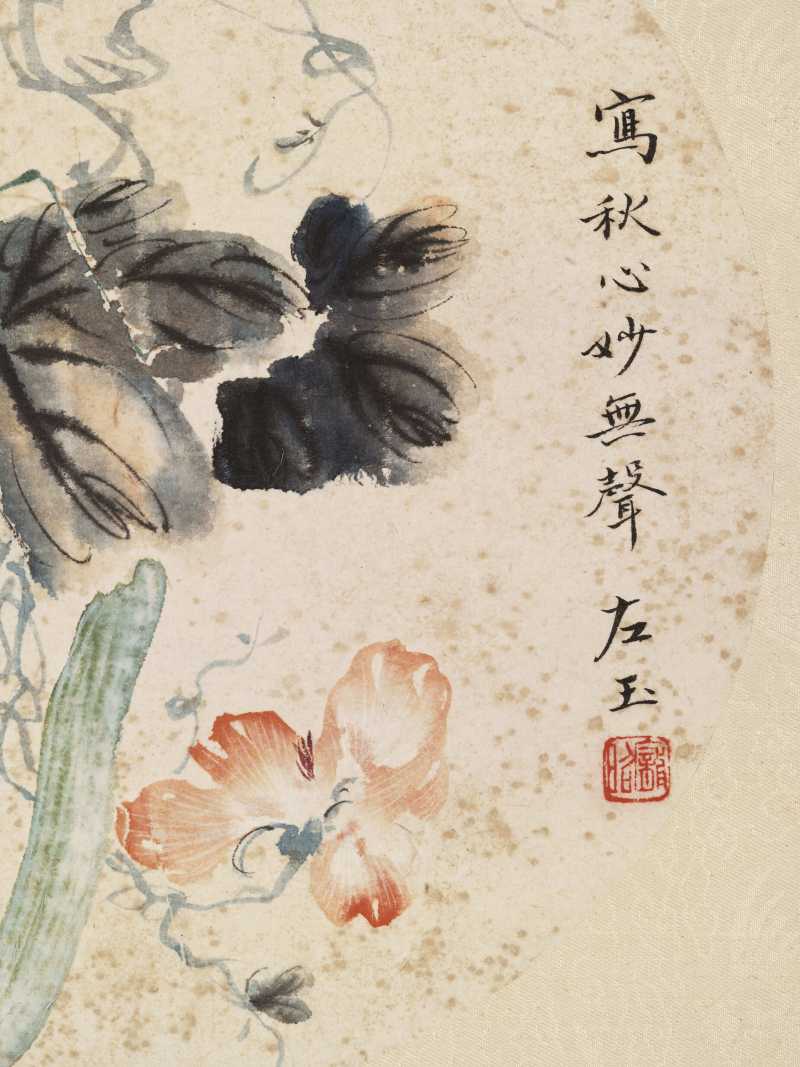 寫秋心妙無聲 左玉